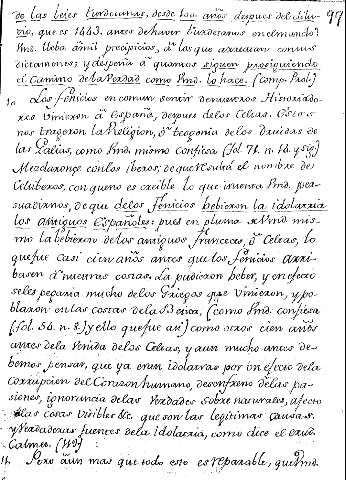 97
de las leies turdetanas, desde 100 años despues del dilu-
vio, que es 1443. antes de haver turdetanos en el mundo?
Vmd. lleba á mil precipicios, á los que arrastran con sus
dictamenes; y despeña á quantos siguen prosiguiendo
el Camino de la Verdad como Vmd. lo hace. (Comp. Prol.)
10 Los fenicios en comun sentir de nuestros Historiado-
res vinieron á España, despues de los Celtas. Estos
nos trageron la Religion, ó teogonia de los Druidas de
las Galias, como Vmd. mismo confiesa (fol. 71. n. 14. y sig)
Mezclaronse con los iberos; de que resultó el nombre de
Celtiberos, con que no es creible lo que intenta Vmd. per-
suadirnos, de que delos fenicios bebieron la idolatria
los antiguos Españoles: pues en pluma de Vmd. mis-
mo la bebieron de los antiguos franceses, ó Celtas, lo
que fue casi cien años antes que los fenicios arri-
basen á nuestras costas. La pudieron beber, y en efecto
seles pegaria mucho delos Griegos que vinieron, y po-
blaron en las costas de la Betica, (como Vmd. confiesa
(fol. 54. n. 8.) y ello que fue asi) como otros cien años
antes dela venida delos Celtas, y aun mucho antes de-
bemos pensar, que ya eran idolatras por un efecto de la
corrupcion del Corazon humano, desenfreno de las pa-
siones, ignorancia de las Verdades sobre naturales, afecto
á las cosas visibles &c. que son las legitimas causas
y Verdaderas fuentes de la idolatria, como dice el erud.
Calmet.
11. Pero aun mas que todo esto es reparable, que Vmd.